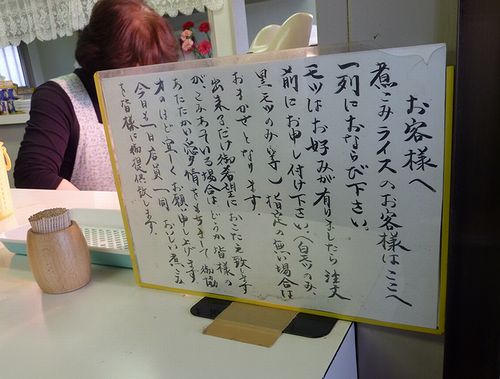 お客様へ
煮こみライスのお客様はここへ
一列におならび下さい。
モツはお好みが有りましたら注文
前にお申し付け下さい。(白モツのみ、
黒モツのみ(等)) 指定の無い場合は
おまかせとなります。
出来るだけ御希望におこたえ致します
がこみあっている場合はどうか皆様の
あたたかい愛情をもちまして御協
力のほど宜しくお願い申し上げます。
今日も一日店員一同、おいしい煮こみ
を皆様に御提供致します。